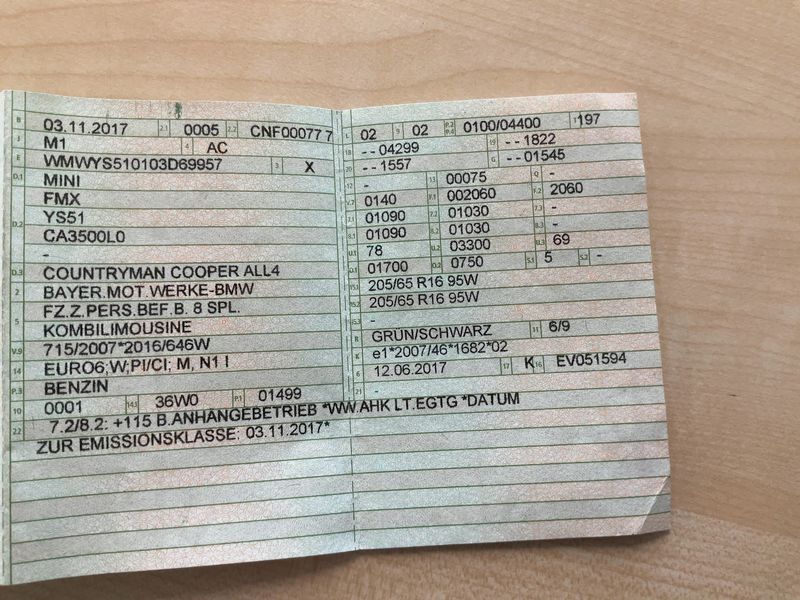 B 03.11.2017 2.1 0005 2.2 CNF00077 7
J M1 4 AC
E WMWYS510103D69957 3 X
D.1 MINI
FMX
D.2 YS51
CA3500L0
-
D.3 COUNTRYMAN COOPER ALL4
2 BAYER.MOT.WERKE-BMW
5 FZ.Z.PERS.BEF.B. 8 SPL.
KOMBILIMOUSINE
V.9 715/2007*2016/646W
14 EURO6;W;PI/CI; M, N1 I
P.3 BENZIN
10 0001 14.1 36W0 P.1 01499
L 02 9 02 P.2 P.4 0100/04400 T 197
18 --04299 19 --1822
20 --1557 G --01545
12 - 13 00075 Q -
V.7 0140 F.1 002060 F.2 2060
7.1 01090 7.2 01030 7.3 -
8.1 01090 8.2 01030 8.3 -
U.1 78 U.2 03300 U.3 69
O.1 01700 O.2 0750 S.1 5 S.2 -
15.1 205/65 R16 95W
15.2 205/65 R16 95W
15.3 -
R GRÜN/SCHWARZ 11 6/9
K e1*2007/46*1682*02
6 12.06.2017 17 K 16 EV051594
21 -
22 7.2/8.2: +115 B.ANHANGEBETRIEB *WW.AHK LT.EGTG *DATUM
ZUR EMISSIONSKLASSE: 03.11.2017*